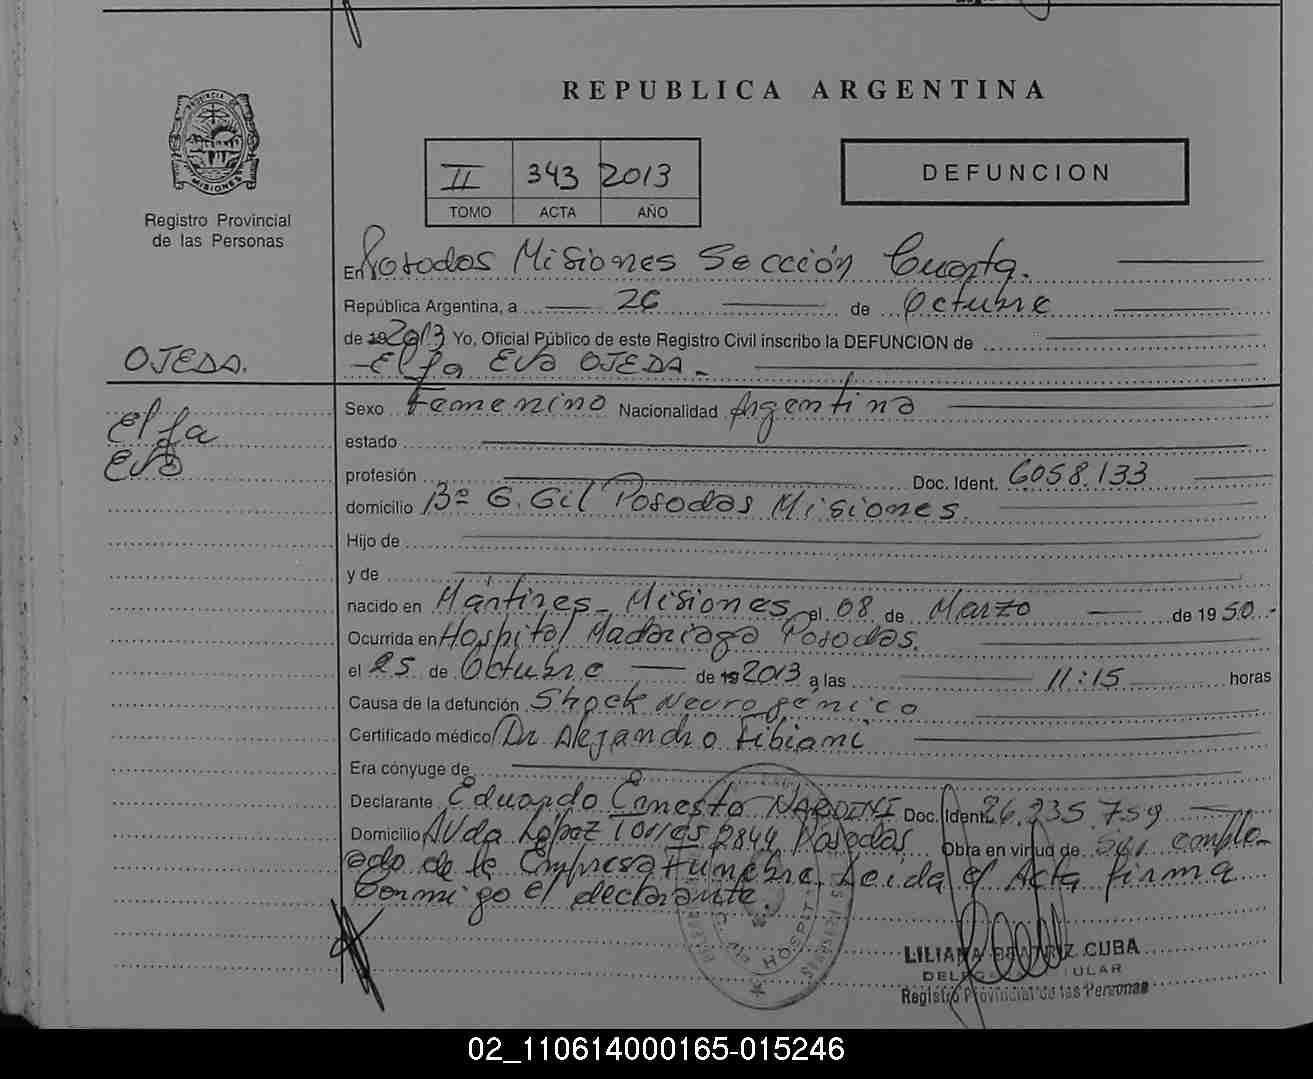 REPUBLICA ARGENTINA
PROVINCIA DE
MISIONES
Registro Provincial
de las Personas
II 343 2013
TOMO ACTA AÑO
DEFUNCION
En Posadas Misiones Sección Cuarta.
República Argentina, a 26 de Octubre
de 19 2013 Yo, Oficial Público de este Registro Civil inscribo la DEFUNCION de
OJEDA.
- Elfa Eva OJEDA -
Elfa
Eva
Sexo Femenino Nacionalidad Argentina
estado
profesión Doc. Ident. 6058.133
domicilio Bº G. Gil Posadas Misiones
Hijo de
y de
nacido en Mártires - Misiones el 08 de Marzo de 1950.-
Ocurrida en Hospital Madariaga Posadas.
el 25 de Octubre de 19 2013 a las 11:15 horas
Causa de la defunción Shock Neurogénico
Certificado médico Dr. Alejandro Fibiani
Era cónyuge de
Declarante Eduardo Ernesto NARDINI Doc. Ident. 26.235.759
Domicilio Avda López Torres 2844 Posadas Obra en virtud de ser emple-
ado de la Empresa Fúnebre. Leida el Acta firma
Conmigo el declarante.
HOSPIT
LILIANA BEATRIZ CUBA
Registro Provincial de las Personas
02_110614000165-015246